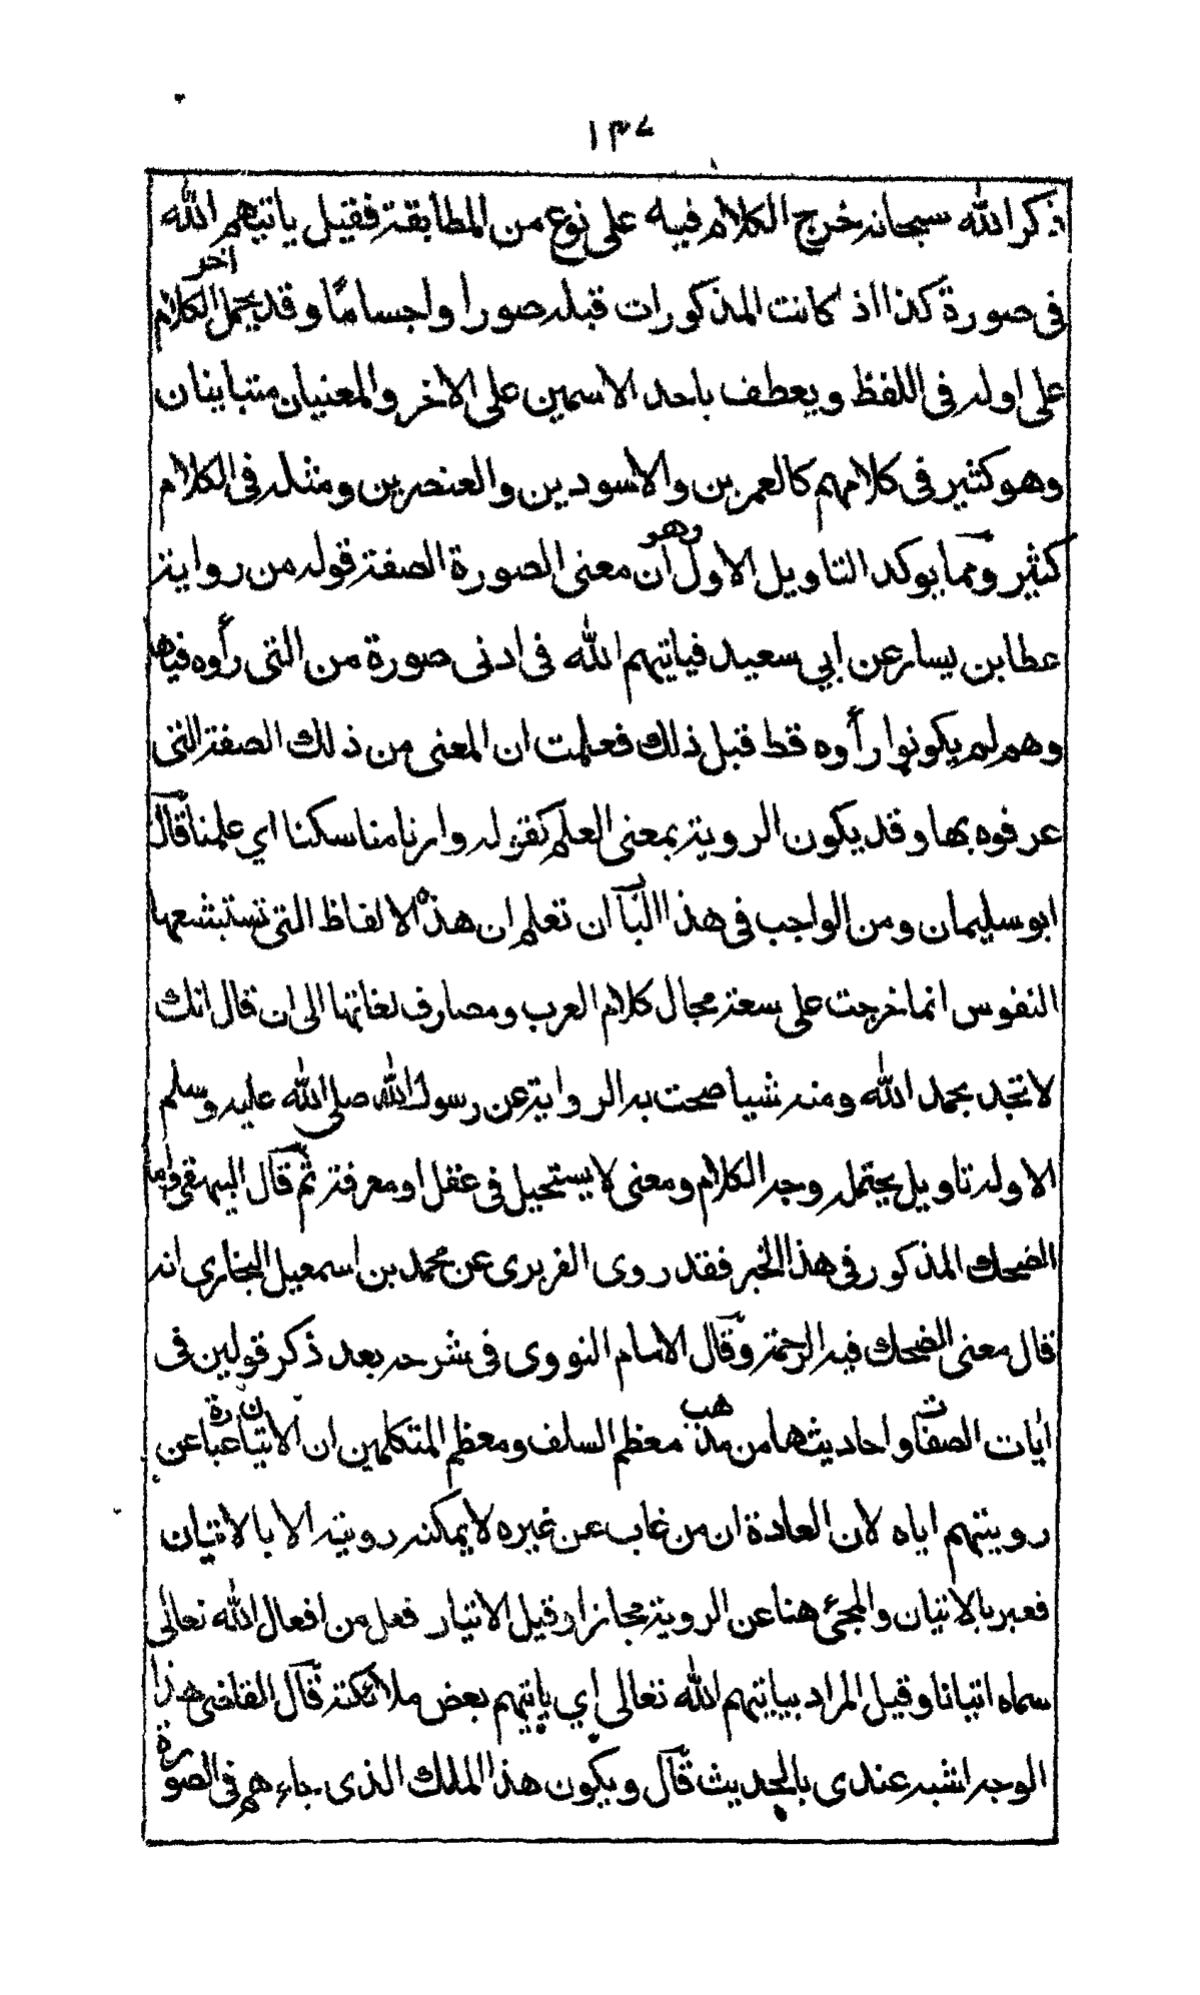 ١٣٧
ذكر الله سبحانه خرج الكلام فيه على نوع من المطابقة فقيل ياتيهم الله
فى صورة كذا اذ كانت المذكورات قبله صورا واجساما وقد يحمل اخر الكلام
على اوله فى اللفظ ويعطف باحد الاسمين على الاخر والمعنيان متباينان
وهو كثير فى كلامهم كالعمرين والاسودين والعنصرين ومثله فى الكلام
كثير ومما يوكد التاويل الاول وهو ان معنى الصورة الصفة قوله من رواية
عطا بن يسار عن ابي سعيد فياتيهم الله فى ادنى صورة من التى رأوه فيها
وهم لم يكونوا رأوه قط قبل ذلك فعلمت ان المعنى من ذلك الصفة التى
عرفوه بها وقد يكون الروية بمعنى العلم كقوله وارنا مناسكنا اي علمنا قال
ابو سليمان ومن الواجب فى هذا الباب ان تعلم ان هذه الالفاظ التى تستبشعها
النفوس انما خرجت على سعة مجال كلام العرب ومصارف لغاتها الى ان قال انك
لا تجد بحمد الله ومنه شيا صحت به الرواية عن رسول الله صلى الله عليه وسلم
الا وله تاويل يحتمله وجه الكلام ومعنى لا يستحيل فى عقل او معرفة ثم قال البيهقى واما
الضحك المذكور فى هذا الخبر فقد روى الفربرى عن محمد بن اسمعيل البخاري انه
قال معنى الضحك فيه الرحمة وقال الامام النووى فى شرحه بعد ذكر قولين فى
ايات الصفات واحاديثها من مذهب معظم السلف ومعظم المتكلمين ان الاتيان عبارة عن
رويتهم اياه لان العادة ان من غاب عن غيره لا يمكنه رويته الا بالاتيان
فعبر بالاتيان والمجئ هنا عن الروية مجازا وقيل الاتيان فعل من افعال الله تعالى
سماه اتيانا وقيل المراد بياتيهم الله تعالى اي ياتيهم بعض ملائكته قال القاضى هذا
الوجه اشبه عندى بالحديث قال ويكون هذا الملك الذى جاءهم فى الصورة